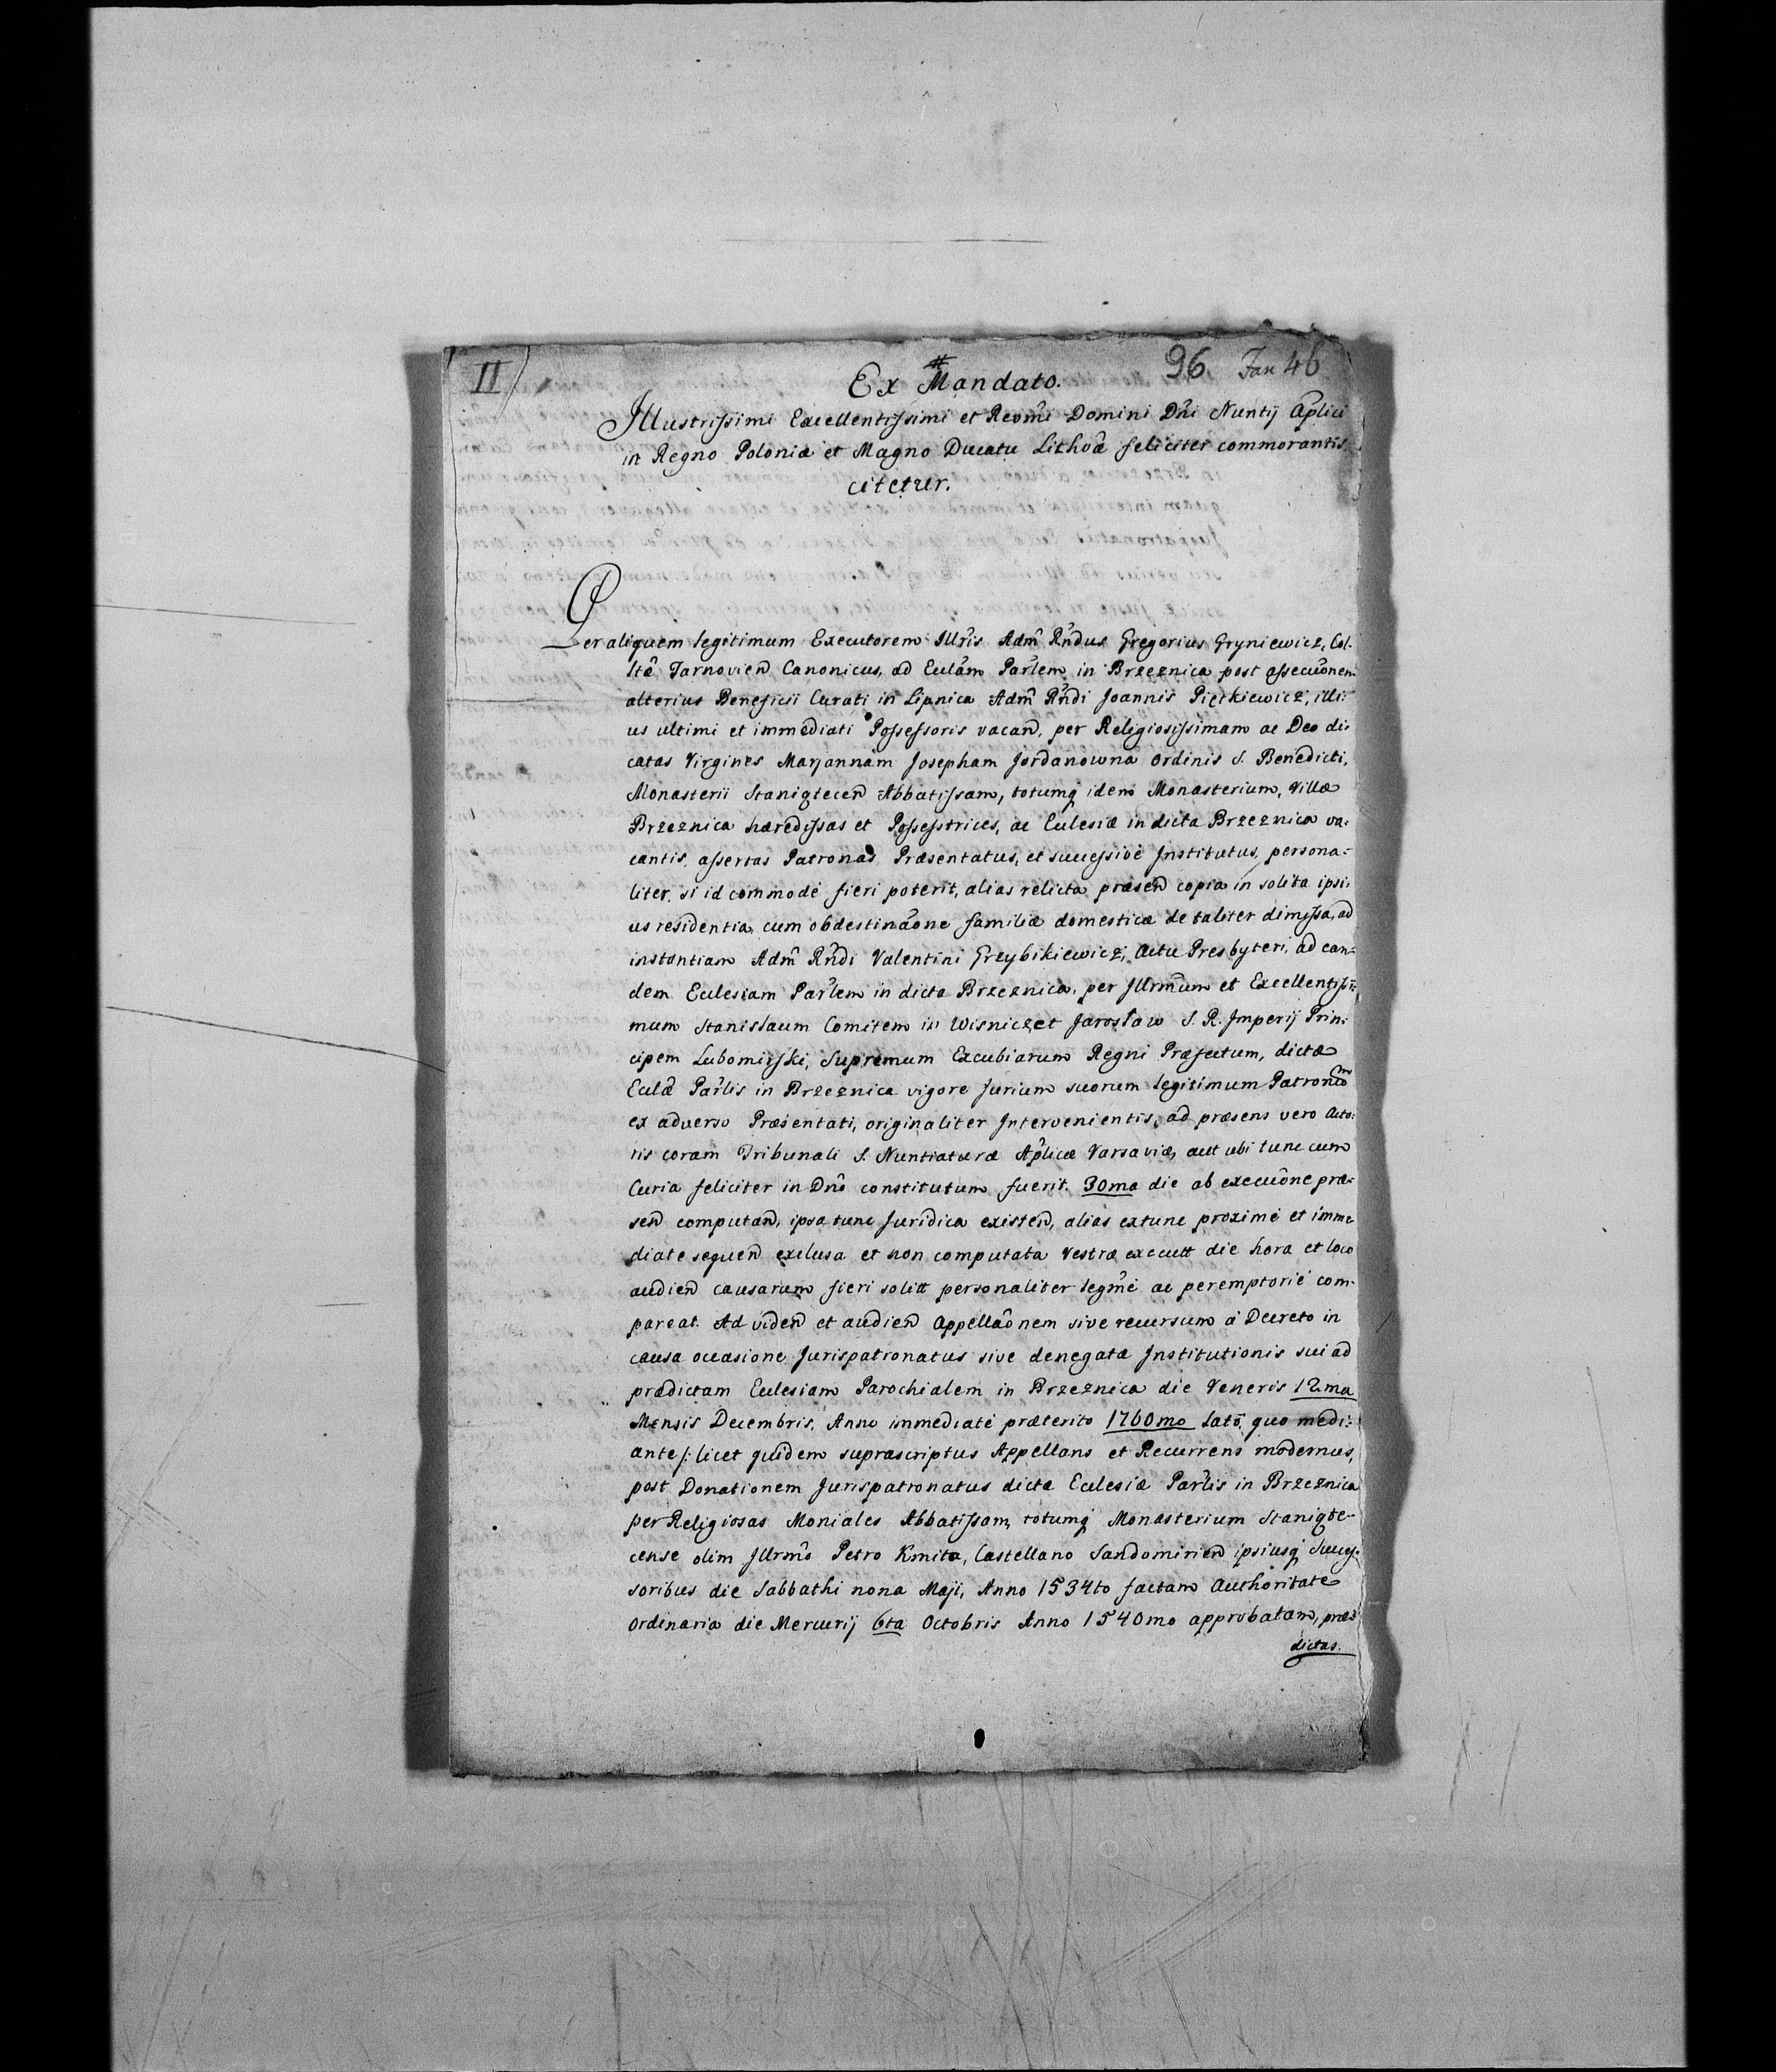 II
96. Fan 46
Ex Mandato.
Illustrissimi Excellentissimi et Reomi Domini Dni Nuntij Aplici
in Regno Poloniæ et Magno Ducatu Lithvæ feliciter commorantis.
citetur.
Per aliquem legitimum Executorem Illris Adm Rndus Gregorius Gryniewicz, Col-
ltæ Tarnovien Canonicus, ad Ecclam Parlem in Brzeznica post assecuonem
alterius Beneficii Curati in Lipnica Adm Rndi Joannis Piętkiewicz, illi-
us ultimi et immediati Possessoris vacan, per Religiosissimam ac Deo di-
catas Virgines Maryannam Josepham Jordanowna Ordinis S. Benedicti,
Monasterii Staniątecen Abbatissam, totumq idem Monasterium, Villæ
Brzeznica hæredissas et Possestrices, ac Ecclesiæ in dicta Brzeznica va-
cantis, assertas Patronas, Præsentatus, et successivè Institutus, persona-
liter, si id commodè fieri poterit, alias relicta præsen copia in solita ipsi-
us residentia, cum obdestinaone familiæ domesticæ de taliter dimissa, ad
instantiam Adm Rndi Valentini Grzybikiewicz, Actu Presbyteri, ad ean-
dem Ecclesiam Parlem in dicta Brzeznica, per Illrmum et Excellentissi-
mum Stanislaum Comitem in Wisnicz et Jaroslaw S. R. Imperij Prin-
cipem Lubomirski, Supremum Excubiarum Regni Præfectum, dictæ
Ecclæ Parlis in Brzeznica vigore Jurium suorum legitimum Patronum
ex adverso Præsentati, originaliter Intervenientis, ad præsens vero Acto-
ris coram Tribunali S. Nuntiaturæ Aplicæ Varsaviæ, aut ubi tunc cum
Curia feliciter in Dno constitutum fuerit. 30ma die ab execuone præ-
sen computan, ipsa tunc Juridica existen, alias extunc proximè et imme-
diate sequen exclusa et non computata Vestræ executt die hora et loco
audien causarum fieri solitt personaliter legmè ac peremptoriè com-
pareat. Ad viden et audien Appellaonem sive recursum à Decreto in
causa occasione Jurispatronatus sive denegatæ Institutionis sui ad
prædictam Ecclesiam Parochialem in Brzeznica die Veneris 12ma
Mensis Decembris, Anno immediatè præterito 1760mo lato, quo medi-
ante /: licet quidem suprascriptus Appellans et Recurrens modernus,
post Donationem Jurispatronatus dictæ Ecclesiæ Parlis in Brzeznica
per Religiosas Moniales Abbatissam, totumq Monasterium Staniąte-
cense olim Illrmo Petro Kmita, Castellano Sandomirien ipsiusq Succes-
soribus die Sabbathi nona Maji, Anno 1534to factam Authoritate
Ordinaria die Mercurij 6ta Octobris Anno 1540mo approbatam, præ-
dictas.